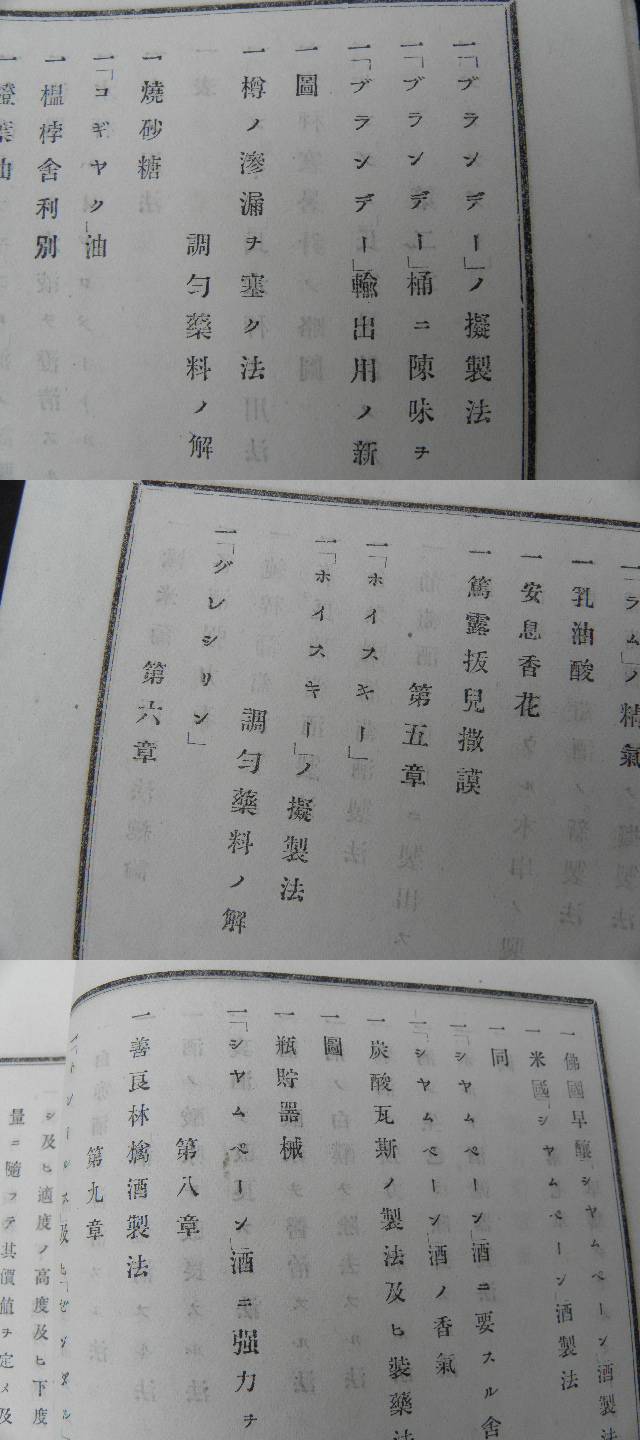 一「ブランデー」ノ擬製法
一「ブランデー」桶ニ陳味ヲ
一「ブランデー」輸出用ノ新
一圖
一樽ノ滲漏ヲ塞ク法
調匀藥料ノ解
一燒砂糖
一「コギヤク」油
一榲桲舍利別
一橙葉油
一「ラム」ノ精氣
一乳油酸
一安息香花
一篤露拔兒撒謨
第五章
一「ホイスキー」
一「ホイスキー」ノ擬製法
調匀藥料ノ解
一「グレシリン」
第六章
一佛國早釀「シヤムペーン」酒製法
一米國「シヤムペーン」酒製法
一同
一「シヤムペーン」酒ニ要スル舍
一「シヤムペーン」酒ノ香氣
一炭酸瓦斯ノ製法及ヒ裝藥法
一圖
一瓶貯器械
一「シヤムペーン」酒ニ强力ヲ
第八章
一善良林檎酒製法
第九章
シ及ヒ適度ノ高度及ヒ下度
量ニ隨フテ其價値ヲ定メ及